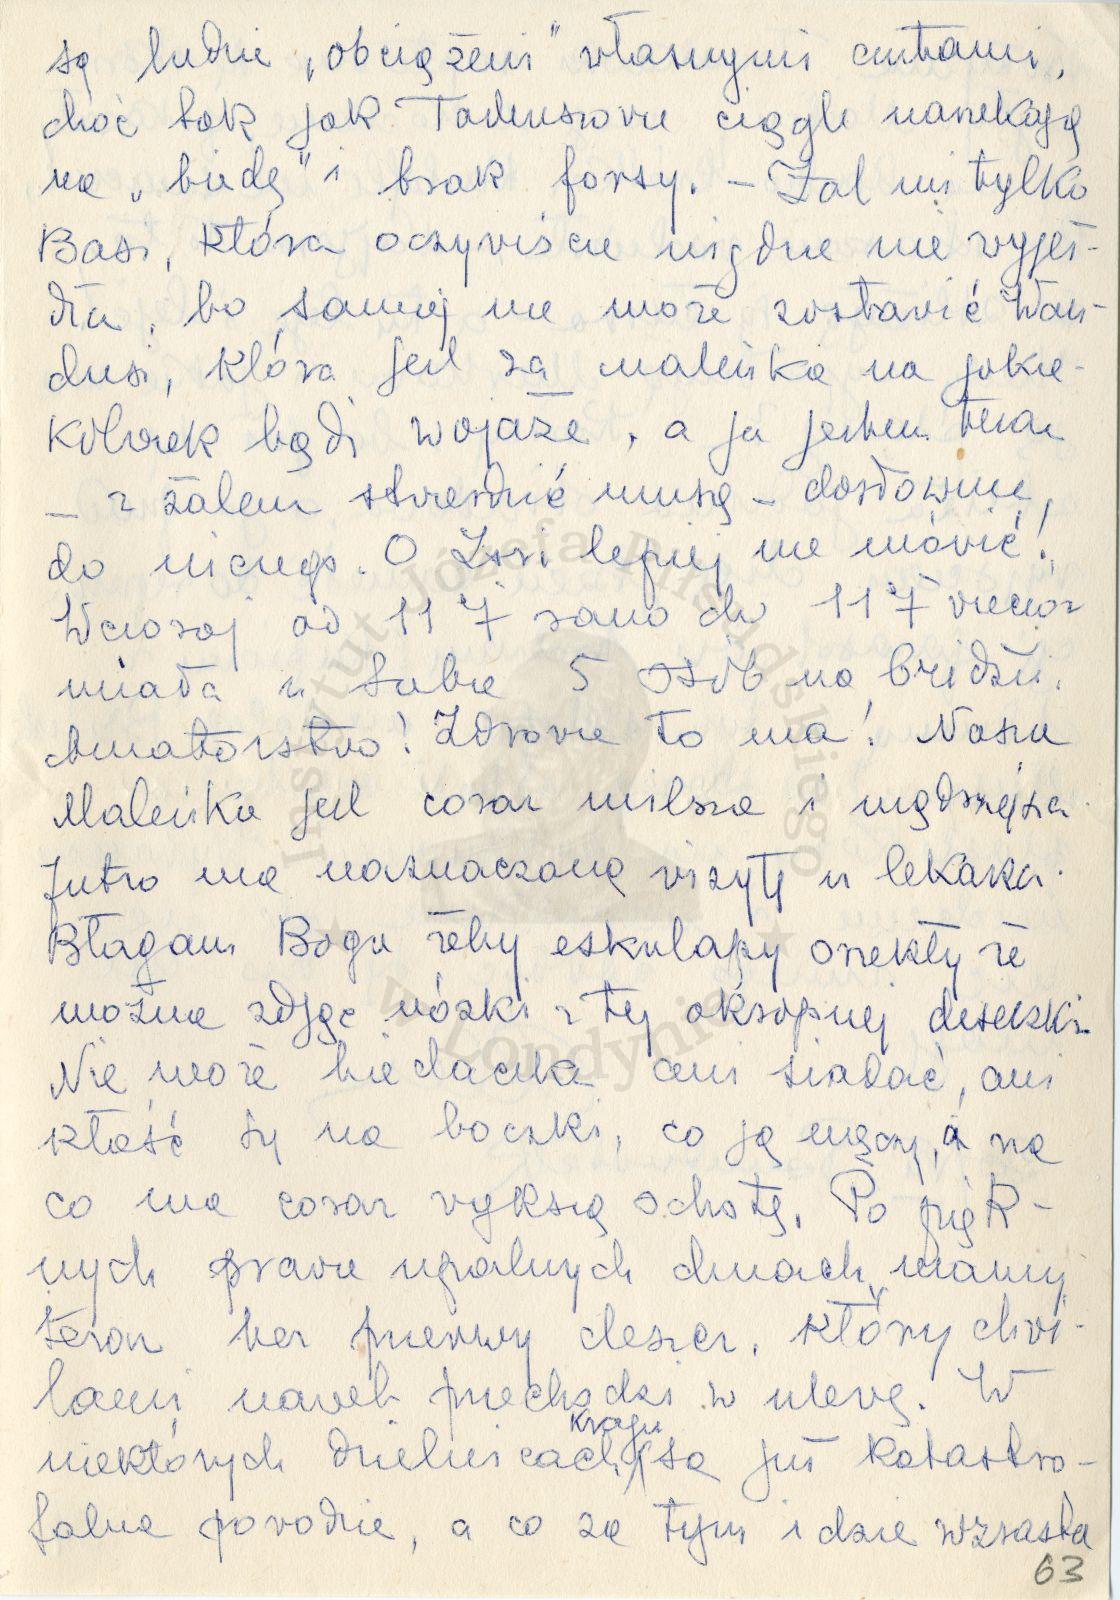 są ludzie „obciążeni" własnymi autami,
choć tak jak Tadeuszowie ciągle narzekają
na „biedę" i brak forsy. – Żal mi tylko
Basi, która oczywiście nigdzie nie wyjeż-
dża, bo samej nie może zostawić Wan-
dusi, która jest za maleńka na jakie-
kolwiek bądź wojaże, a ja jestem teraz
– z żalem stwierdzić muszę – dosłownie,
do niczego. O Izsi lepiej nie mówić!
Wczoraj od 11 tej rano do 11 tej wieczór
miała u siebie 5 osób na bridżu.
Amatorstwo! Zdrowie to ma! Nasza
Maleńka jest coraz milsza i mądrzejsza.
Jutro ma naznaczoną wizytę u lekarza.
Błagam Boga żeby eskulapy orzekły że
można zdjąć nóżki z tej okropnej deseczki.
Nie może biedaczka ani siadać, ani
kłaść się na boczki, co ją męczy, a na
co ma coraz większą ochotę. Po pięk-
nych prawie upalnych dniach, mamy
teraz bez przerwy deszcz, który chwi-
lami nawet przechodzi w ulewę. W
niektórych dzielnicach kraju są już katastro-
falne powodzie, a co za tym idzie wzrasta
63
Instytut Józefa Piłsudskiego
w Londynie